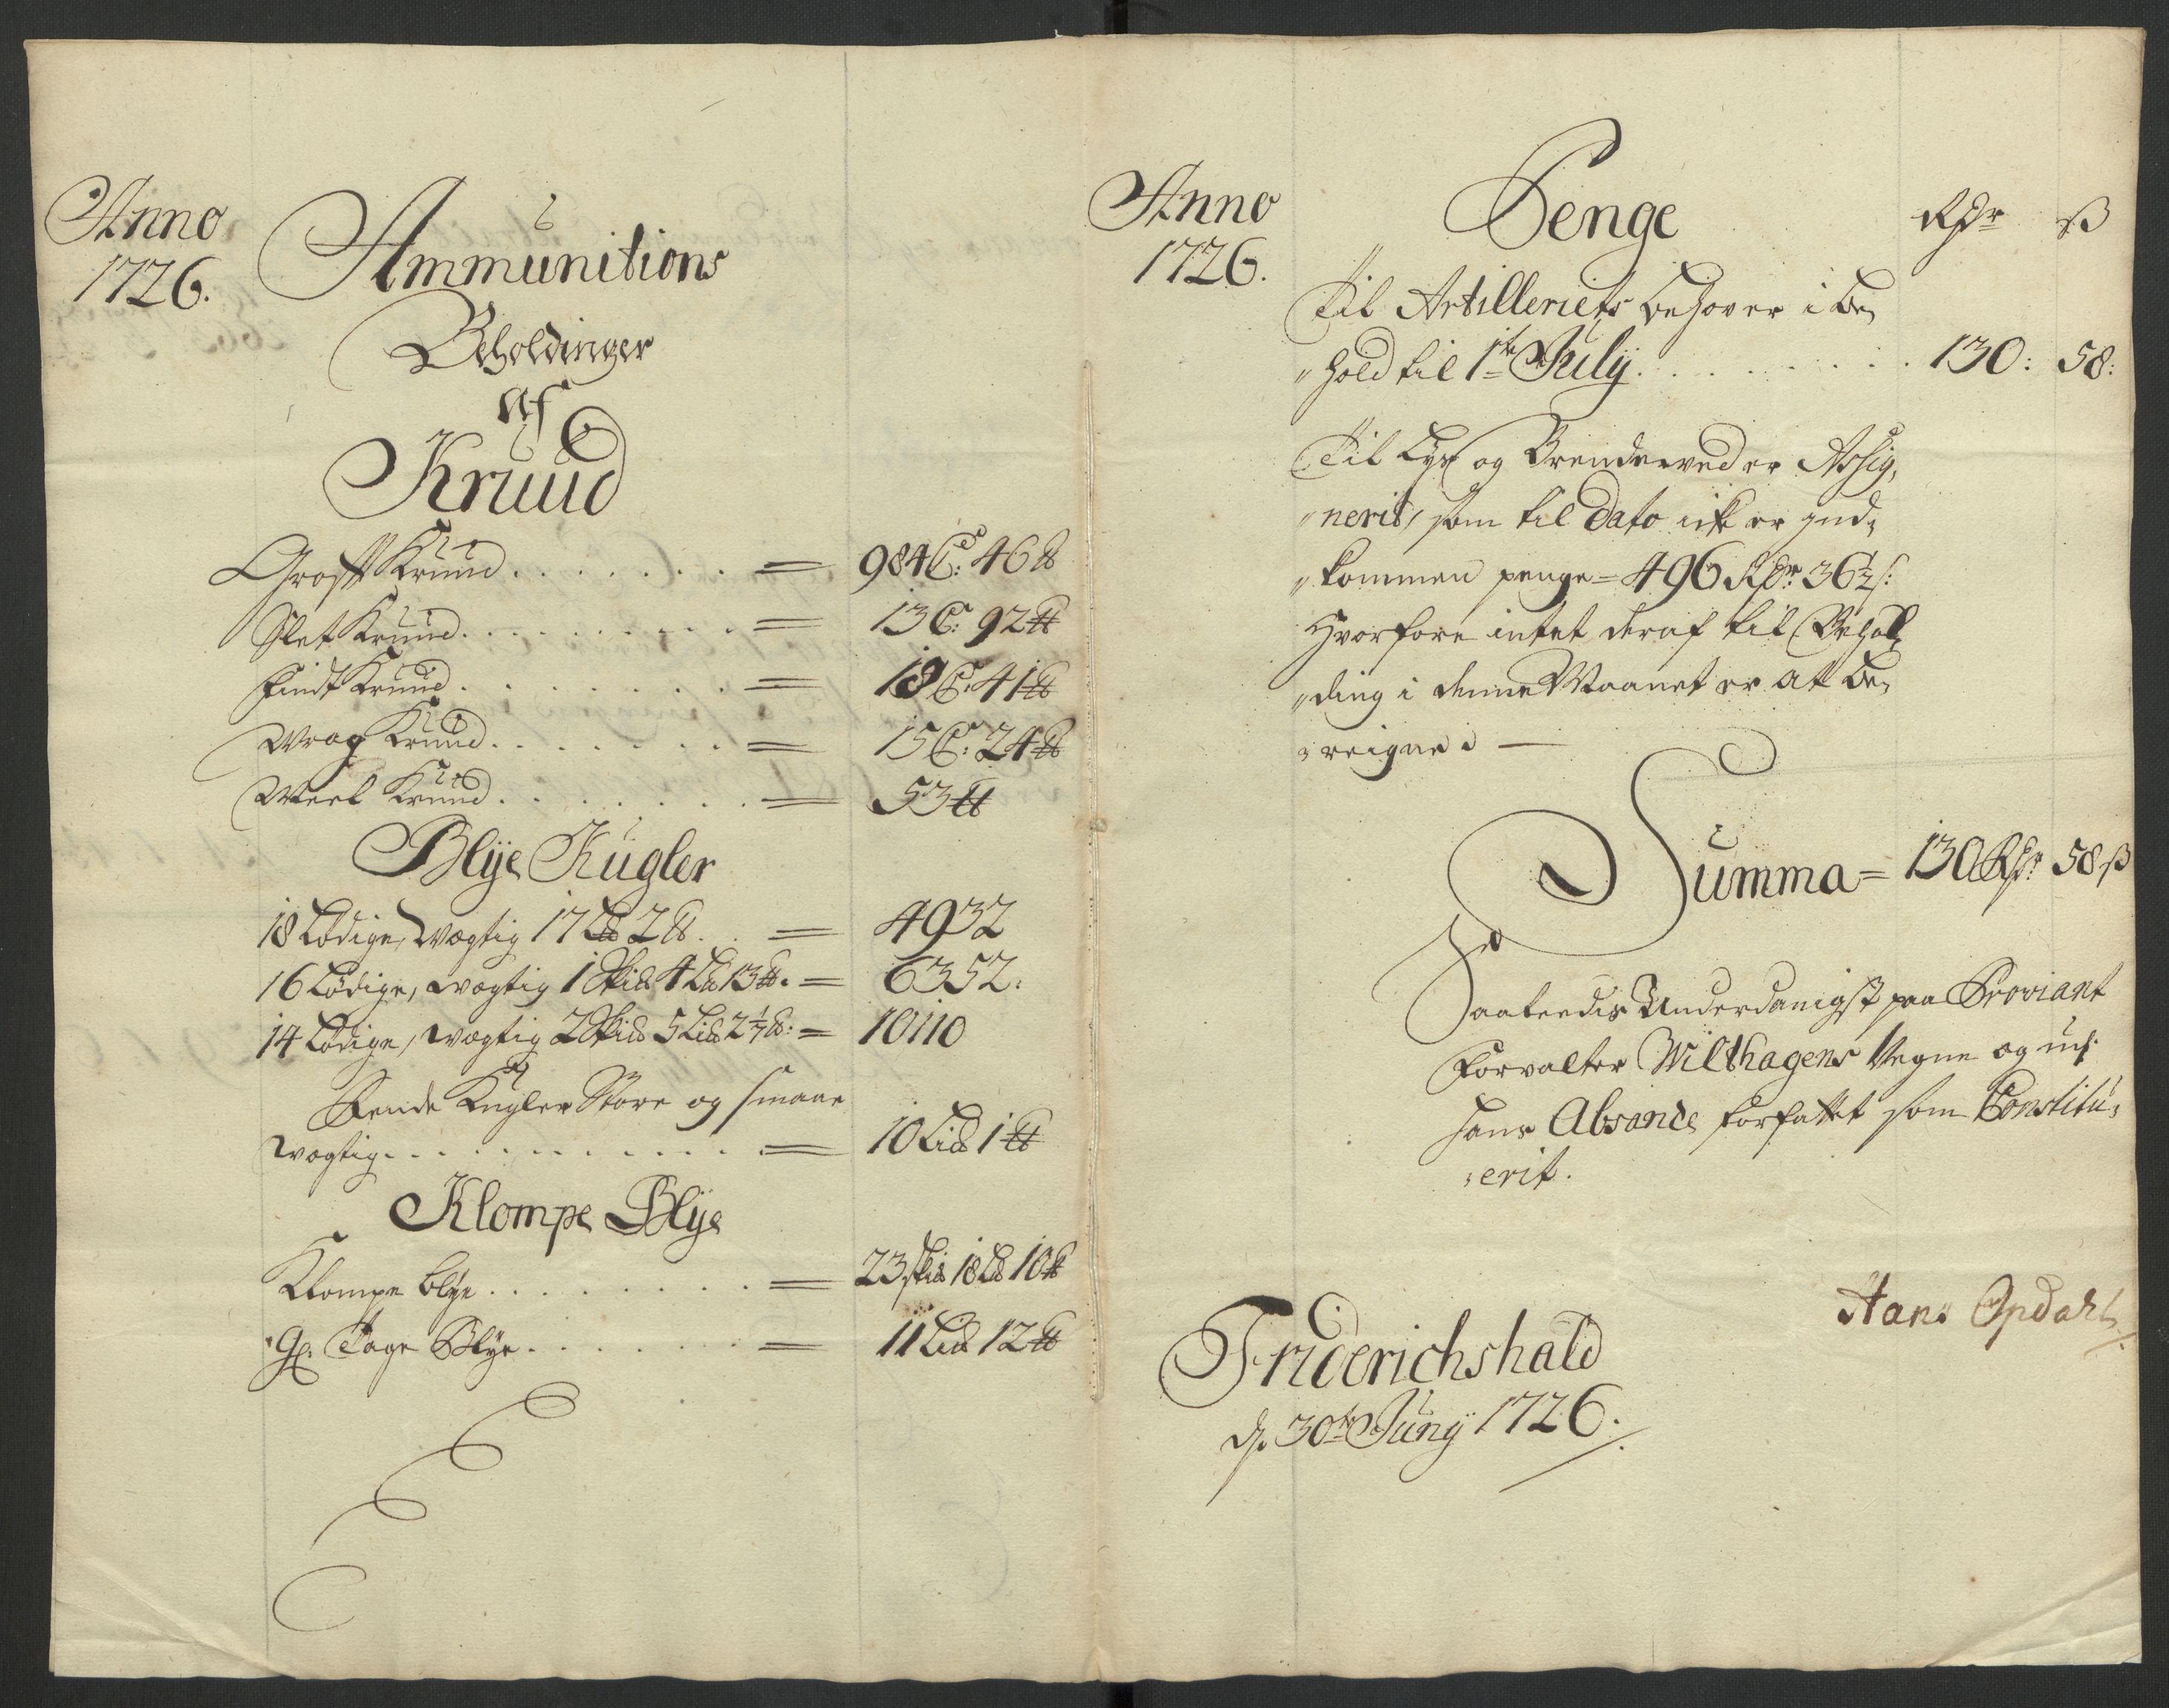 Anno
1726.
Ammunitions
Beholdinger
Af
Kruud
Groft Kruud = 984 C: 46 ℔
Slet Kruud = 13 C: 92 ℔
Findt Kruud = 18 C: 41 ℔
Wrag Kruud = 15 C: 24 ℔
Meel Kruud = 53 ℔
Blÿe Kugler
18 Lodige, Vogtig 17 L℔ 2 ℔ = 4932
16 Lödige, vogtig 1 Skid 4 L℔ 13 ℔ = 6352:
14 Lödige, vogtig 2 Skid 5 Lid 2½ ℔: = 10110
Kugler Store og smaae
vogtig = 10 Lid 1 ℔
Klompe Blÿe
Klompe blÿe = 23 skid 18 L℔ 10 ℔
Gl: Tage Blÿe = 11 Lid 12 ℔
Anno
1726.
Penge Rdr ß
Til Artilleriets behover i be„
„hold til 1te Julÿ 130: 58:
Til Lys og Brendeved er Assig„
„nerit, som til dato ick er ind„
„kommen penge = 496 Rdr 36½ ß:
Hvorfore intet deraf til Behol„
„ding i denne Maanet er at be„
„reigne
Summa = 130 Rdr 58 ß
Saaledis Underdanigst paa Proviant
Forvalter Wilthagens Vegne og udj
hans Absance forfattet som Constitu„
„erit.
Hans Opdahl
Friderichshald
d. 30te Junÿ 1726.